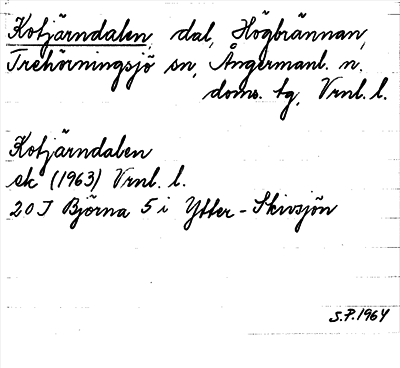 Kotjärndalen, dal, Högbrännan,
Trehörningsjö sn, Ångermanl. n.
doms. tg, Vrnl. l.
Kotjärndalen
ek (1963) Vrnl. l.
20 J Björna 5 i Ytter-Skivsjön
S.P. 1964